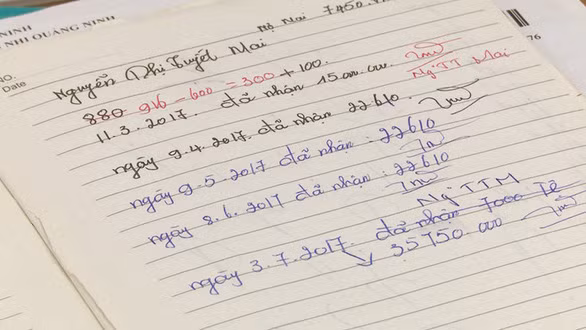 NINH
NHI QUẢNG NINH
Mai 7450
NO.
Date
Nguyễn Thị Tuyết Mai
76
880 916 - 600 = 300 + 100.
11.3.2017. đã nhận 15.000.000.
Ng TT Mai
ngày 9.4.2017. đã nhận 22610.
ngày 9.5.2017 đã nhận: 22610
ngày 8.6.2017 đã nhận: 22610
Ng TTM
ngày 3.7.2017. đã nhận 7000 Tê
35750.000